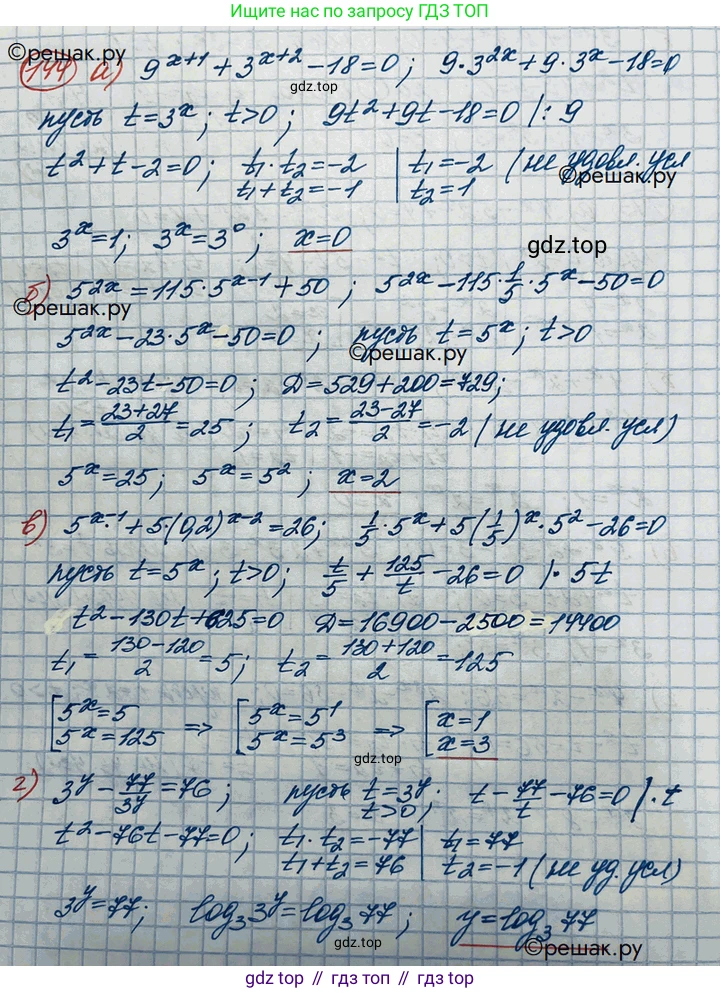 Ищите ответ по запросу ГДЗ ТОП
©решак.ру
144 а) 9^(x+1) + 3^(x+2) − 18 = 0; 9·3^(2x) + 9·3^x − 18 = 0
gdz.top
пусть t = 3^x; t > 0; 9t² + 9t − 18 = 0 |: 9
t² + t − 2 = 0; t₁·t₂ = −2 | t₁ = −2 (не удовл. усл
t₁ + t₂ = −1 | t₂ = 1
©решак.ру
3^x = 1; 3^x = 3⁰; x = 0
gdz.top
б) 5^(2x) = 115·5^(x−1) + 50; 5^(2x) − 115·1/5·5^x − 50 = 0
©решак.ру
5^(2x) − 23·5^x − 50 = 0; пусть t = 5^x; t > 0
©решак.ру
t² − 23t − 50 = 0; D = 529 + 200 = 729;
t₁ = (23+27)/2 = 25; t₂ = (23−27)/2 = −2 (не удовл. усл)
5^x = 25; 5^x = 5²; x = 2
gdz.top
в) 5^(x−1) + 5·(0,2)^(x−2) = 26; 1/5·5^x + 5(1/5)^x·5² − 26 = 0
пусть t = 5^x; t > 0; t/5 + 125/t − 26 = 0 |· 5t
t² − 130t + 625 = 0 D = 16900 − 2500 = 14400
t₁ = (130−120)/2 = 5; t₂ = (130+120)/2 = 125
[5^x = 5 => [5^x = 5¹ => [x = 1
5^x = 125 5^x = 5³ x = 3
gdz.top
г) 3^y − 77/3^y = 76; пусть t = 3^y; t − 77/t − 76 = 0 |· t
t > 0
t² − 76t − 77 = 0; t₁·t₂ = −77 | t₁ = 77
t₁ + t₂ = 76 | t₂ = −1 (не уд. усл)
3^y = 77; log₃3^y = log₃77; y = log₃77
gdz.top
©решак.ру
gdz top // гдз топ // гдз.top